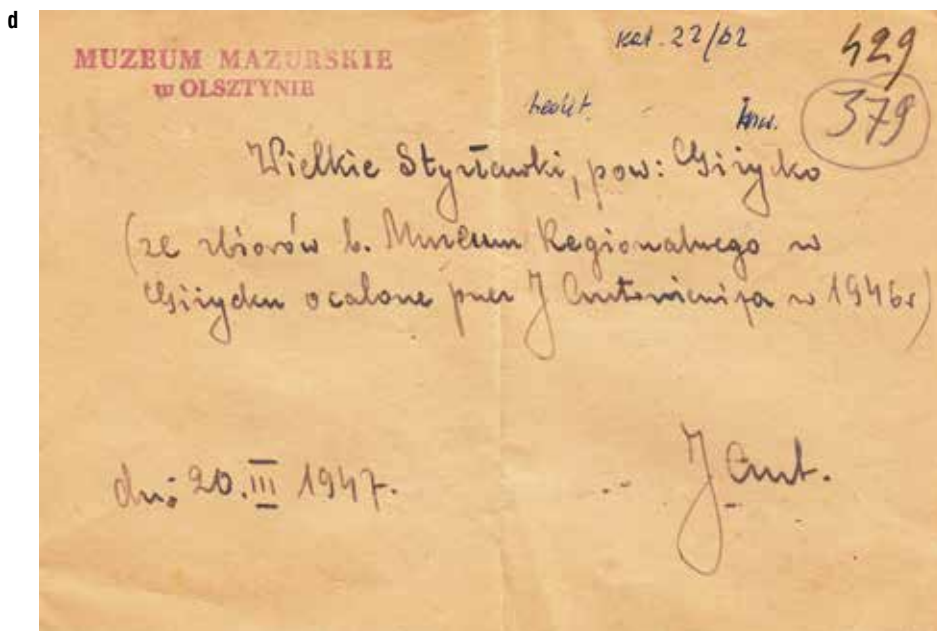 d
MUZEUM MAZURSKIE
w OLSZTYNIE
kat. 22/62
429
379
Inw.
Wielkie Styrławki, pow: Giżycko
(ze zbiorów b. Muzeum Regionalnego w
Giżycku ocalone przez J Antoniewicza w 1946r)
dn: 20.III 1947.
J Ant.